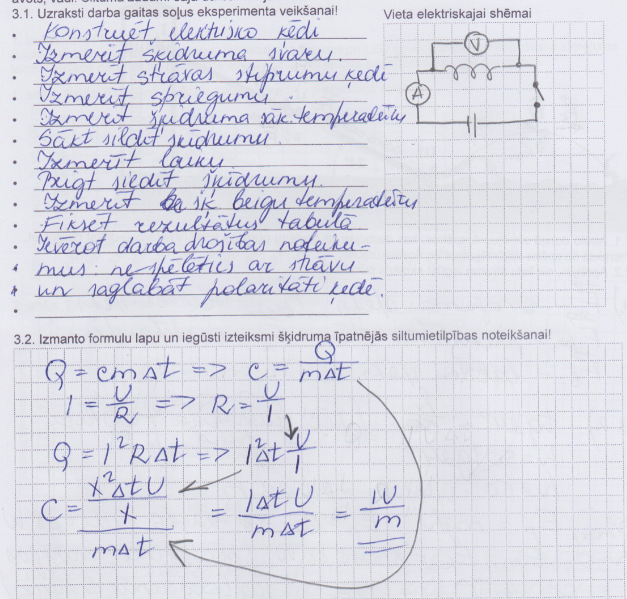 3.1. Uzraksti darba gaitas soļus eksperimenta veikšanai!
Vieta elektriskajai shēmai
• Konstruēt elektrisko ķēdi
• Izmērīt šķidruma svaru.
• Izmērīt strāvas stiprumu ķēdē
• Izmērīt spriegumu.
• Izmērīt šķidruma sāk. temperatūru
• Sākt sildīt šķidrumu.
• Izmērīt laiku.
• Beigt sildīt šķidrumu.
• Izmērīt šķ beigu temperatūru
• Fiksēt rezultātus tabulā
• Ievērot darba drošības noteiku-
• mus: nespēlēties ar strāvu
• un saglabāt polaritāti ķēdē.
V
A
3.2. Izmanto formulu lapu un iegūsti izteiksmi šķidruma īpatnējās siltumietilpības noteikšanai!
Q = cmΔt => c = Q/mΔt
I = U/R => R = U/I
Q = I²RΔt => I²Δt U/I
C = (I²ΔtU/I)/mΔt = IΔtU/mΔt = IU/m